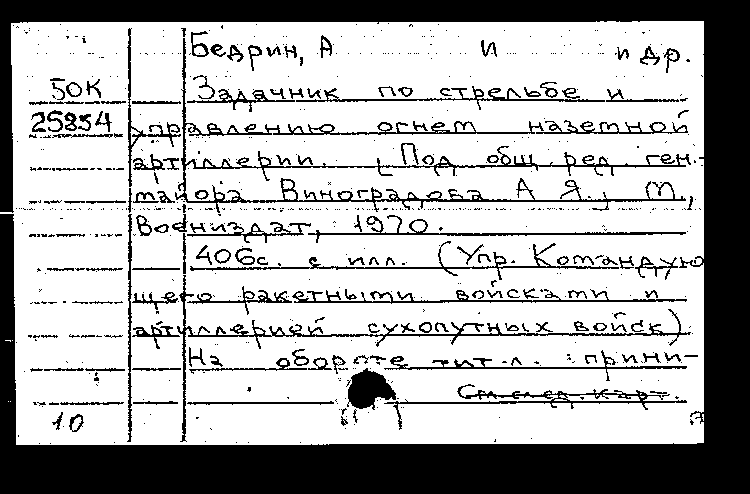 Бедрин, А И и др.
50К Задачник по стрельбе и
25854 управлению огнем наземной
артиллерии. [Под общ ред. ген.-
майора Виноградова А Я.] М.,
Воениздат, 1970.
406с. с илл. (Упр. Командую
щего ракетными войсками и
артиллерией сухопутных войск)
На обороте тит. л. : прини-
См. след. карт.
10